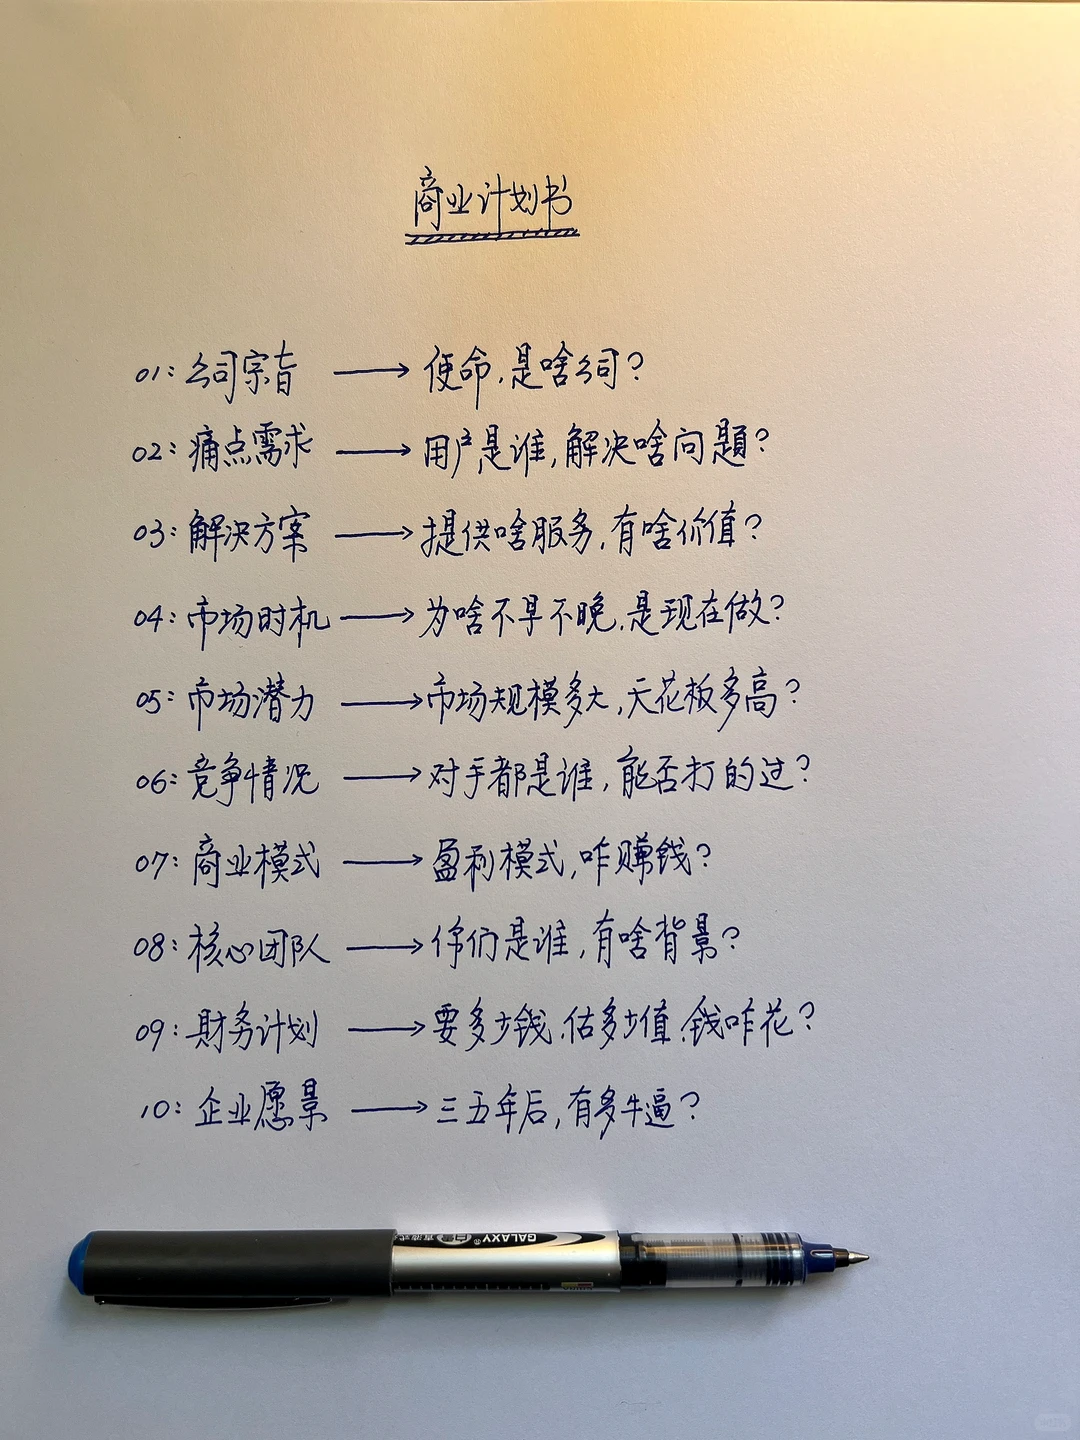 商业计划书
01：公司宗旨 → 使命，是啥公司？
02：痛点需求 → 用户是谁，解决啥问题？
03：解决方案 → 提供啥服务，有啥价值？
04：市场时机 → 为啥不早不晚，是现在做？
05：市场潜力 → 市场规模多大，天花板多高？
06：竞争情况 → 对手都是谁，能否打的过？
07：商业模式 → 盈利模式，咋赚钱？
08：核心团队 → 你们是谁，有啥背景？
09：财务计划 → 要多少钱，估多少值，钱咋花？
10：企业愿景 → 三五年后，有多牛逼？
GALAXY® 白雪 直液式